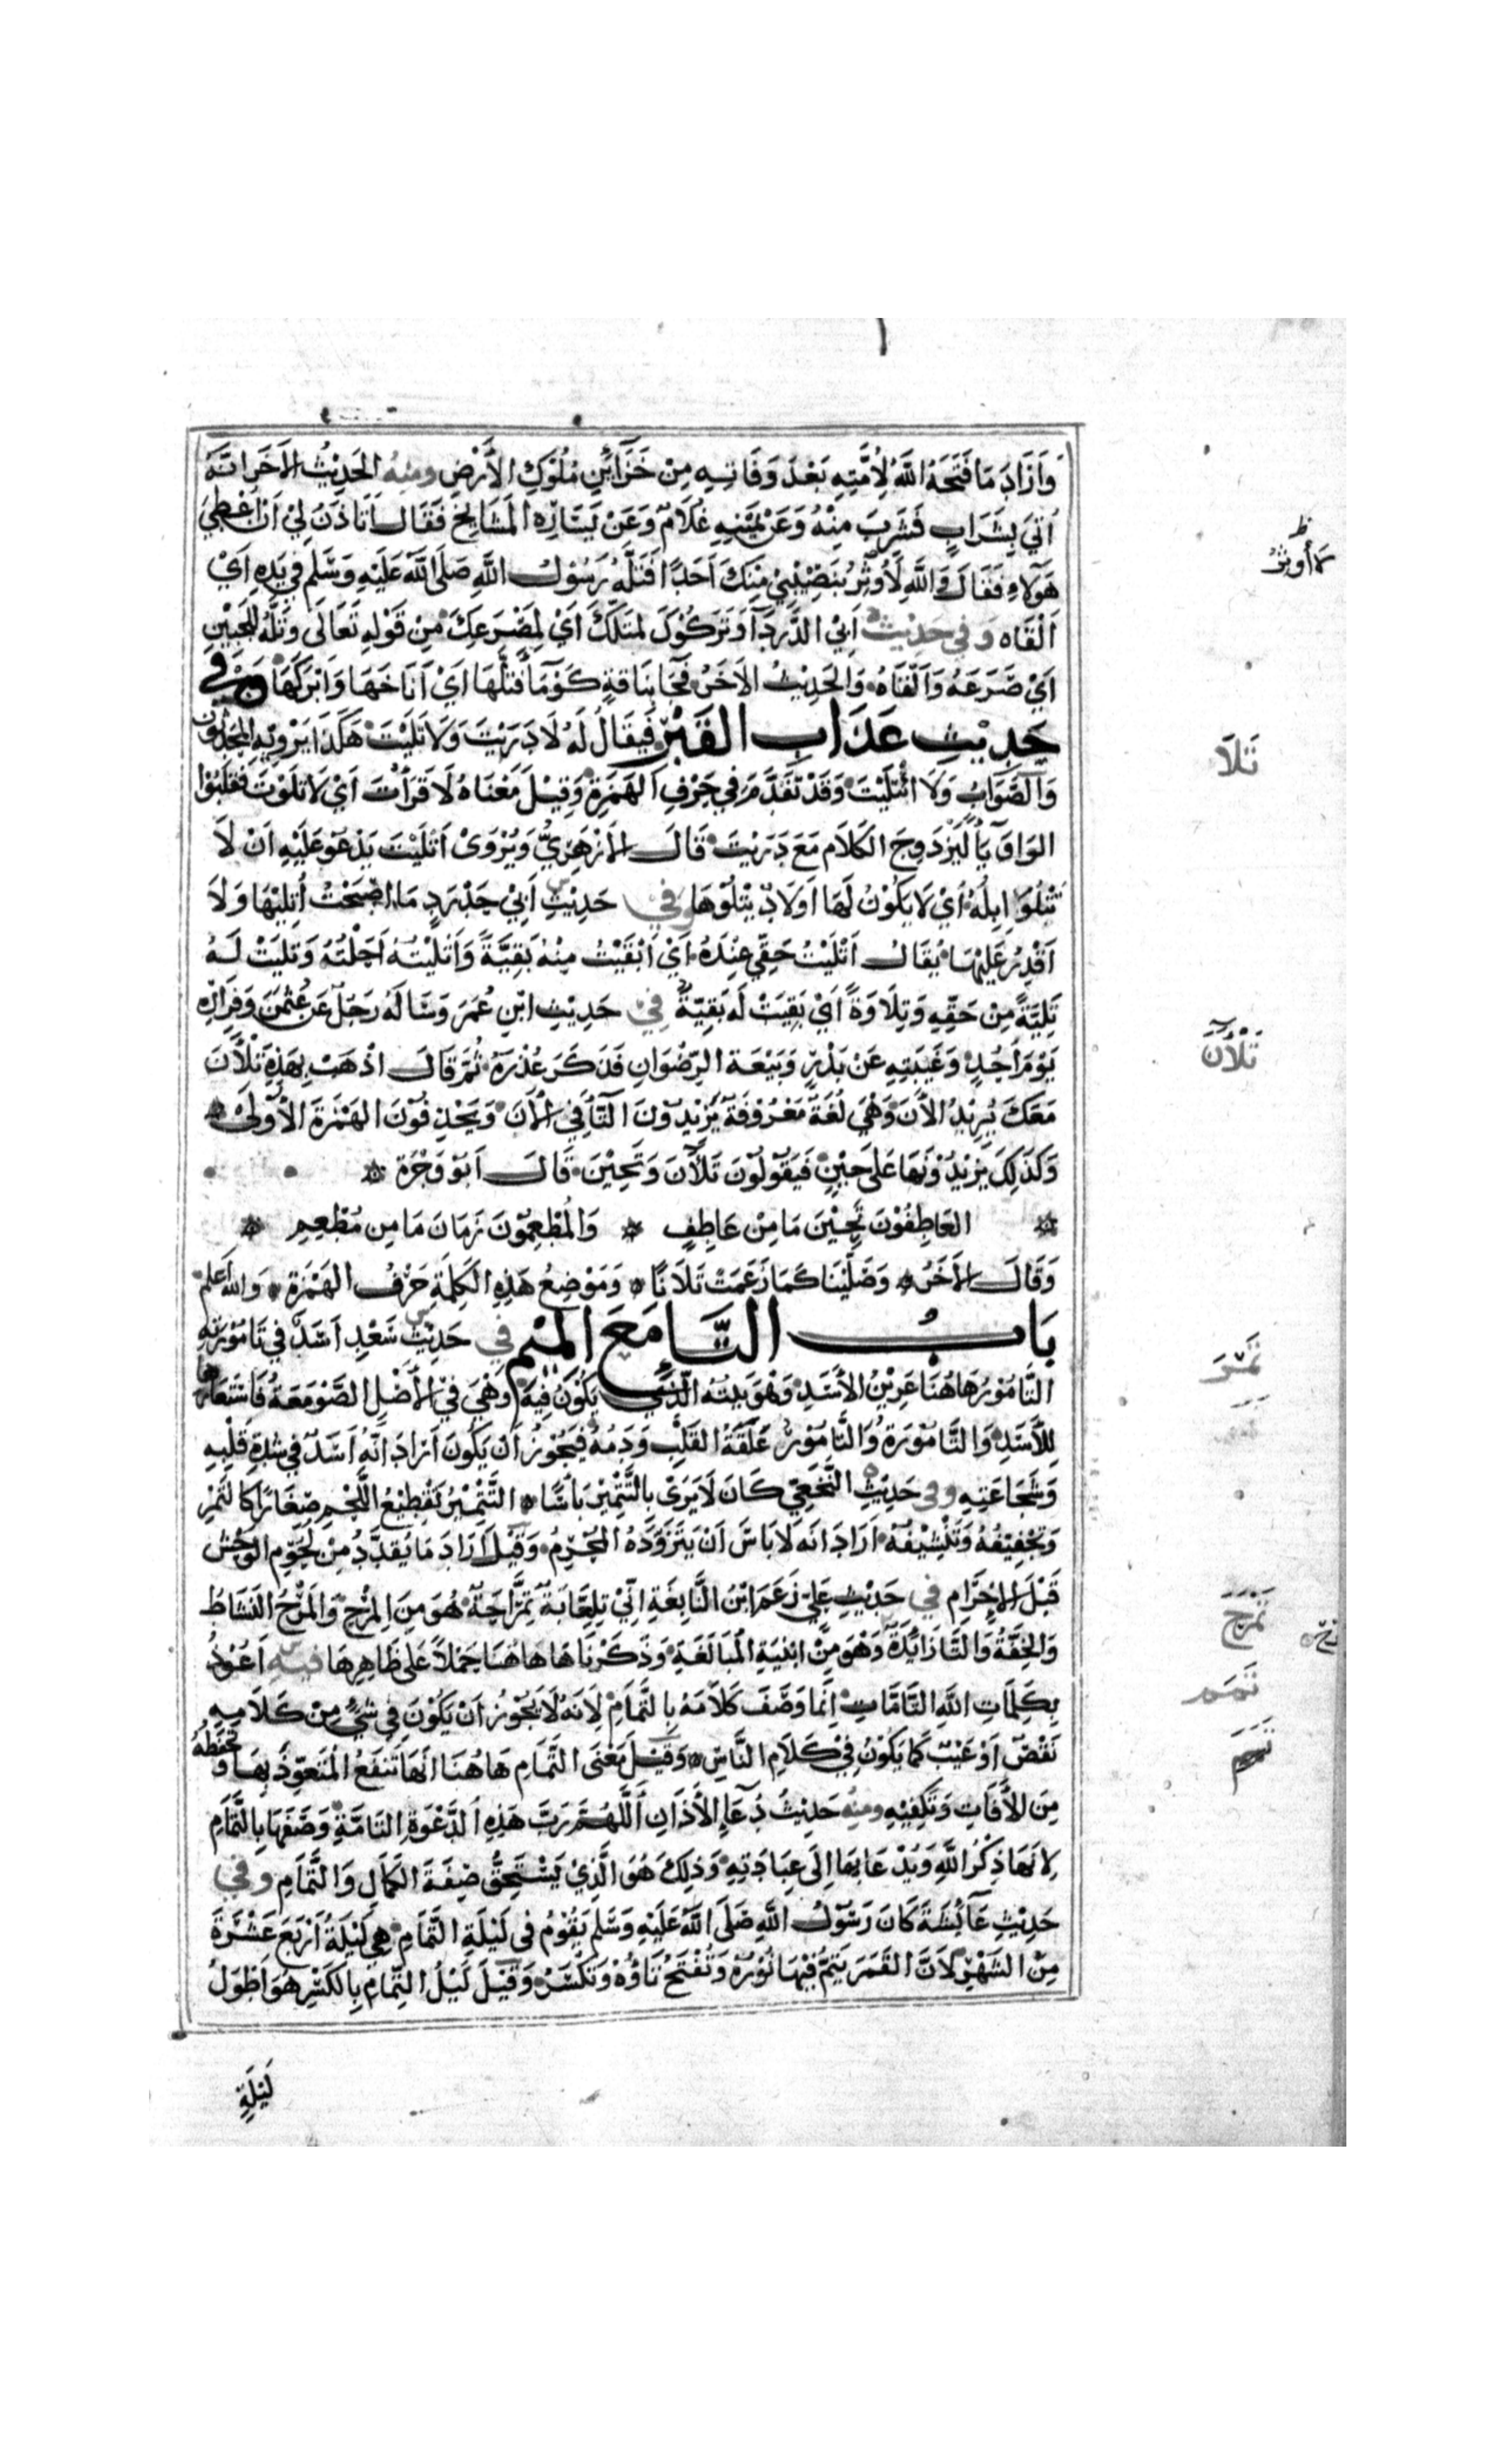 وَاَرَادَ مَا فَتَحَهُ اللَّهُ لِأُمَّتِهِ بَعْدَ وَفَاتِهِ مِنْ خَزَآئِنِ مُلُوْكِ الْأَرْضِ وَمِنْهُ الْحَدِيْثُ الْاٰخَرُ اَنَّهُ
اُتِيَ بِشَرَابٍ فَشَرِبَ مِنْهُ وَعَنْ يَمِيْنِهِ غُلَامٌ وَعَنْ يَسَارِهِ الْمَشَايِخُ فَقَالَ اَتَأْذَنُ لِيْ اَنْ اُعْطِيَ
هٰؤُلَاءِ فَقَالَ وَاللَّهِ لَا اُوْثِرُ بِنَصِيْبِيْ مِنْكَ اَحَدًا فَتَلَّهُ رَسُوْلُ اللَّهِ صَلَّى اللَّهُ عَلَيْهِ وَسَلَّمَ فِي يَدِهِ اَيْ
اَلْقَاهُ وَفِي حَدِيْثِ اَبِي الدَّرْدَآءِ وَتَرَكُوْكَ لِمَتَلِّكَ اَيْ لِمَصْرَعِكَ مِنْ قَوْلِهِ تَعَالَى وَتَلَّهُ لِلْجَبِيْنِ
اَيْ صَرَعَهُ وَاَلْقَاهُ وَالْحَدِيْثُ الْاٰخَرُ فَجَآءَ بِنَاقَةٍ كَوْمَآءَ فَتَلَّهَا اَيْ اَنَاخَهَا وَاَبْرَكَهَا وَفِي
حَدِيْثِ عَذَابِ الْقَبْرِ فَيُقَالُ لَهُ لَا دَرَيْتَ وَلَا تَلَيْتَ هٰكَذَا يَرْوِيْهِ الْمُحَدِّثُوْنَ
وَالصَّوَابُ وَلَا ائْتَلَيْتَ وَقَدْ تَقَدَّمَ فِي حَرْفِ الْهَمْزَةِ وَقِيْلَ مَعْنَاهُ لَا قَرَأْتَ اَيْ لَا تَلَوْتَ فَقَلَبُوْا
الْوَاوَ يَآءً لِيَزْدَوِجَ الْكَلَامُ مَعَ دَرَيْتَ قَالَ الْاَزْهَرِيُّ وَيُرْوٰى اَتْلَيْتَ يَدْعُوْ عَلَيْهِ اَنْ لَا
تُتْلُوَ اِبِلُهُ اَيْ لَا يَكُوْنُ لَهَا اَوْلَادٌ يَتْلُوْهَا وَفِي حَدِيْثِ اَبِيْ حَدْرَدٍ مَا اَصْبَحْتُ اُتْلِيْهَا وَلَا
اَقْدِرُ عَلَيْهَا يُقَالُ اَتْلَيْتُ حَقِّيْ عِنْدَهُ اَيْ اَبْقَيْتُ مِنْهُ بَقِيَّةً وَاَتْلَيْتُهُ اَحَلْتُهُ وَتَلِيَتْ لَهُ
تَلِيَّةٌ مِنْ حَقِّهِ وَتُلَاوَةٌ اَيْ بَقِيَتْ لَهُ بَقِيَّةٌ فِي حَدِيْثِ ابْنِ عُمَرَ وَسَأَلَهُ رَجُلٌ عَنْ عُثْمٰنَ وَفِرَارِهِ
يَوْمَ اُحُدٍ وَغَيْبَتِهِ عَنْ بَدْرٍ وَبَيْعَةِ الرِّضْوَانِ فَذَكَرَ عُذْرَهُ ثُمَّ قَالَ اذْهَبْ بِهٰذِهِ تَلْأَنَ
مَعَكَ يُرِيْدُ الْاٰنَ وَهِيَ لُغَةٌ مَعْرُوْفَةٌ يَزِيْدُوْنَ التَّآءَ فِي الْاٰنَ وَيَحْذِفُوْنَ الْهَمْزَةَ الْاُوْلٰى
وَكَذٰلِكَ يَزِيْدُوْنَهَا عَلَى حِيْنٍ فَيَقُوْلُوْنَ تَلْأَنَ وَتَحِيْنَ قَالَ اَبُوْ وَجْزَةَ
الْعَاطِفُوْنَ تَحِيْنَ مَا مِنْ عَاطِفٍ وَالْمُطْعِمُوْنَ زَمَانَ مَا مِنْ مُطْعِمِ
وَقَالَ الْاٰخَرُ وَصِلِيْنَا كَمَا زَعَمْتِ تَلَانَا وَمَوْضِعُ هٰذِهِ الْكَلِمَةِ حَرْفُ الْهَمْزَةِ وَاللهُ اَعْلَمُ
بَابُ التَّاءِ مَعَ الْمِيْمِ فِي حَدِيْثِ سَعْدٍ اَسَدٌ فِي تَامُوْرَتِهِ
التَّامُوْرُ هَاهُنَا عَرِيْنُ الْاَسَدِ وَهُوَ بَيْتُهُ الَّذِي يَكُوْنُ فِيْهِ وَهِيَ فِي الْاَصْلِ الصَّوْمَعَةُ فَاسْتَعَارَهَا
لِلْاَسَدِ وَالتَّامُوْرَةُ وَالتَّامُوْرُ عَلَقَةُ الْقَلْبِ وَدَمُهُ فَيَجُوْزُ اَنْ يَكُوْنَ اَرَادَ اَنَّهُ اَسَدٌ فِي شِدَّةِ قَلْبِهِ
وَشَجَاعَتِهِ وَفِي حَدِيْثِ النَّخَعِيِّ كَانَ لَا يَرَى بِالتَّتْمِيْرِ بَأْسًا التَّتْمِيْرُ تَقْطِيْعُ اللَّحْمِ صِغَارًا كَالتَّمْرِ
وَتَجْفِيْفُهُ وَتَنْشِيْفُهُ اَرَادَ اَنَّهُ لَا بَاسَ اَنْ يَتَزَوَّدَهُ الْمُحْرِمُ وَقِيْلَ اَرَادَ مَا يُقَدَّدُ مِنْ لُحُوْمِ الْوَحْشِ
قَبْلَ الْاِحْرَامِ فِي حَدِيْثِ عَلِيٍّ زَعَمَ ابْنُ النَّابِغَةِ اَنِّيْ تِلْعَابَةٌ تِمْرَاحَةٌ هُوَ مِنَ الْمَرَحِ وَالْمَرَحُ النَّشَاطُ
وَالْخِفَّةُ وَالتَّآءُ زَائِدَةٌ وَهُوَ مِنْ اَبْنِيَةِ الْمُبَالَغَةِ وَذَكَرْنَاهَا هَاهُنَا حَمْلًا عَلَى ظَاهِرِهَا فِيْهِ اَعُوْذُ
بِكَلِمَاتِ اللَّهِ التَّامَّاتِ اِنَّمَا وَصَفَ كَلَامَهُ بِالتَّمَامِ لِاَنَّهُ لَا يَجُوْزُ اَنْ يَكُوْنَ فِي شَيْءٍ مِنْ كَلَامِهِ
نَقْصٌ اَوْ عَيْبٌ كَمَا يَكُوْنُ فِيْ كَلَامِ النَّاسِ وَقِيْلَ مَعْنَى التَّمَامِ هَاهُنَا اَنَّهَا تَنْفَعُ الْمُتَعَوِّذَ بِهَا وَتَحْفَظُهُ
مِنَ الْاٰفَاتِ وَتَكْفِيْهِ وَمِنْهُ حَدِيْثُ دُعَآءِ الْأَذَانِ اَللّٰهُمَّ رَبَّ هٰذِهِ الدَّعْوَةِ التَّامَّةِ وَصَفَهَا بِالتَّمَامِ
لِاَنَّهَا ذِكْرُ اللَّهِ وَيُدْعَا بِهَا اِلَى عِبَادَتِهِ وَذٰلِكَ هُوَ الَّذِيْ يَسْتَحِقُّ صِفَةَ الْكَمَالِ وَالتَّمَامِ وَفِي
حَدِيْثِ عَآئِشَةَ كَانَ رَسُوْلُ اللَّهِ صَلَّى اللَّهُ عَلَيْهِ وَسَلَّمَ يَقُوْمُ فِي لَيْلَةِ التَّمَامِ هِيَ لَيْلَةُ اَرْبَعَ عَشْرَةَ
مِنَ الشَّهْرِ لِاَنَّ الْقَمَرَ يَتِمُّ فِيْهَا نُوْرُهُ وَتُفْتَحُ تَاؤُهُ وَتُكْسَرُ وَقِيْلَ لَيْلُ التِّمَامِ بِالْكَسْرِ هُوَ اَطْوَلُ
لَيْلَةٍ
لا أوثر
تَلَا
تَلْأَنَ
تَمَرَ
تَمْرَحَ
تَمَمَ